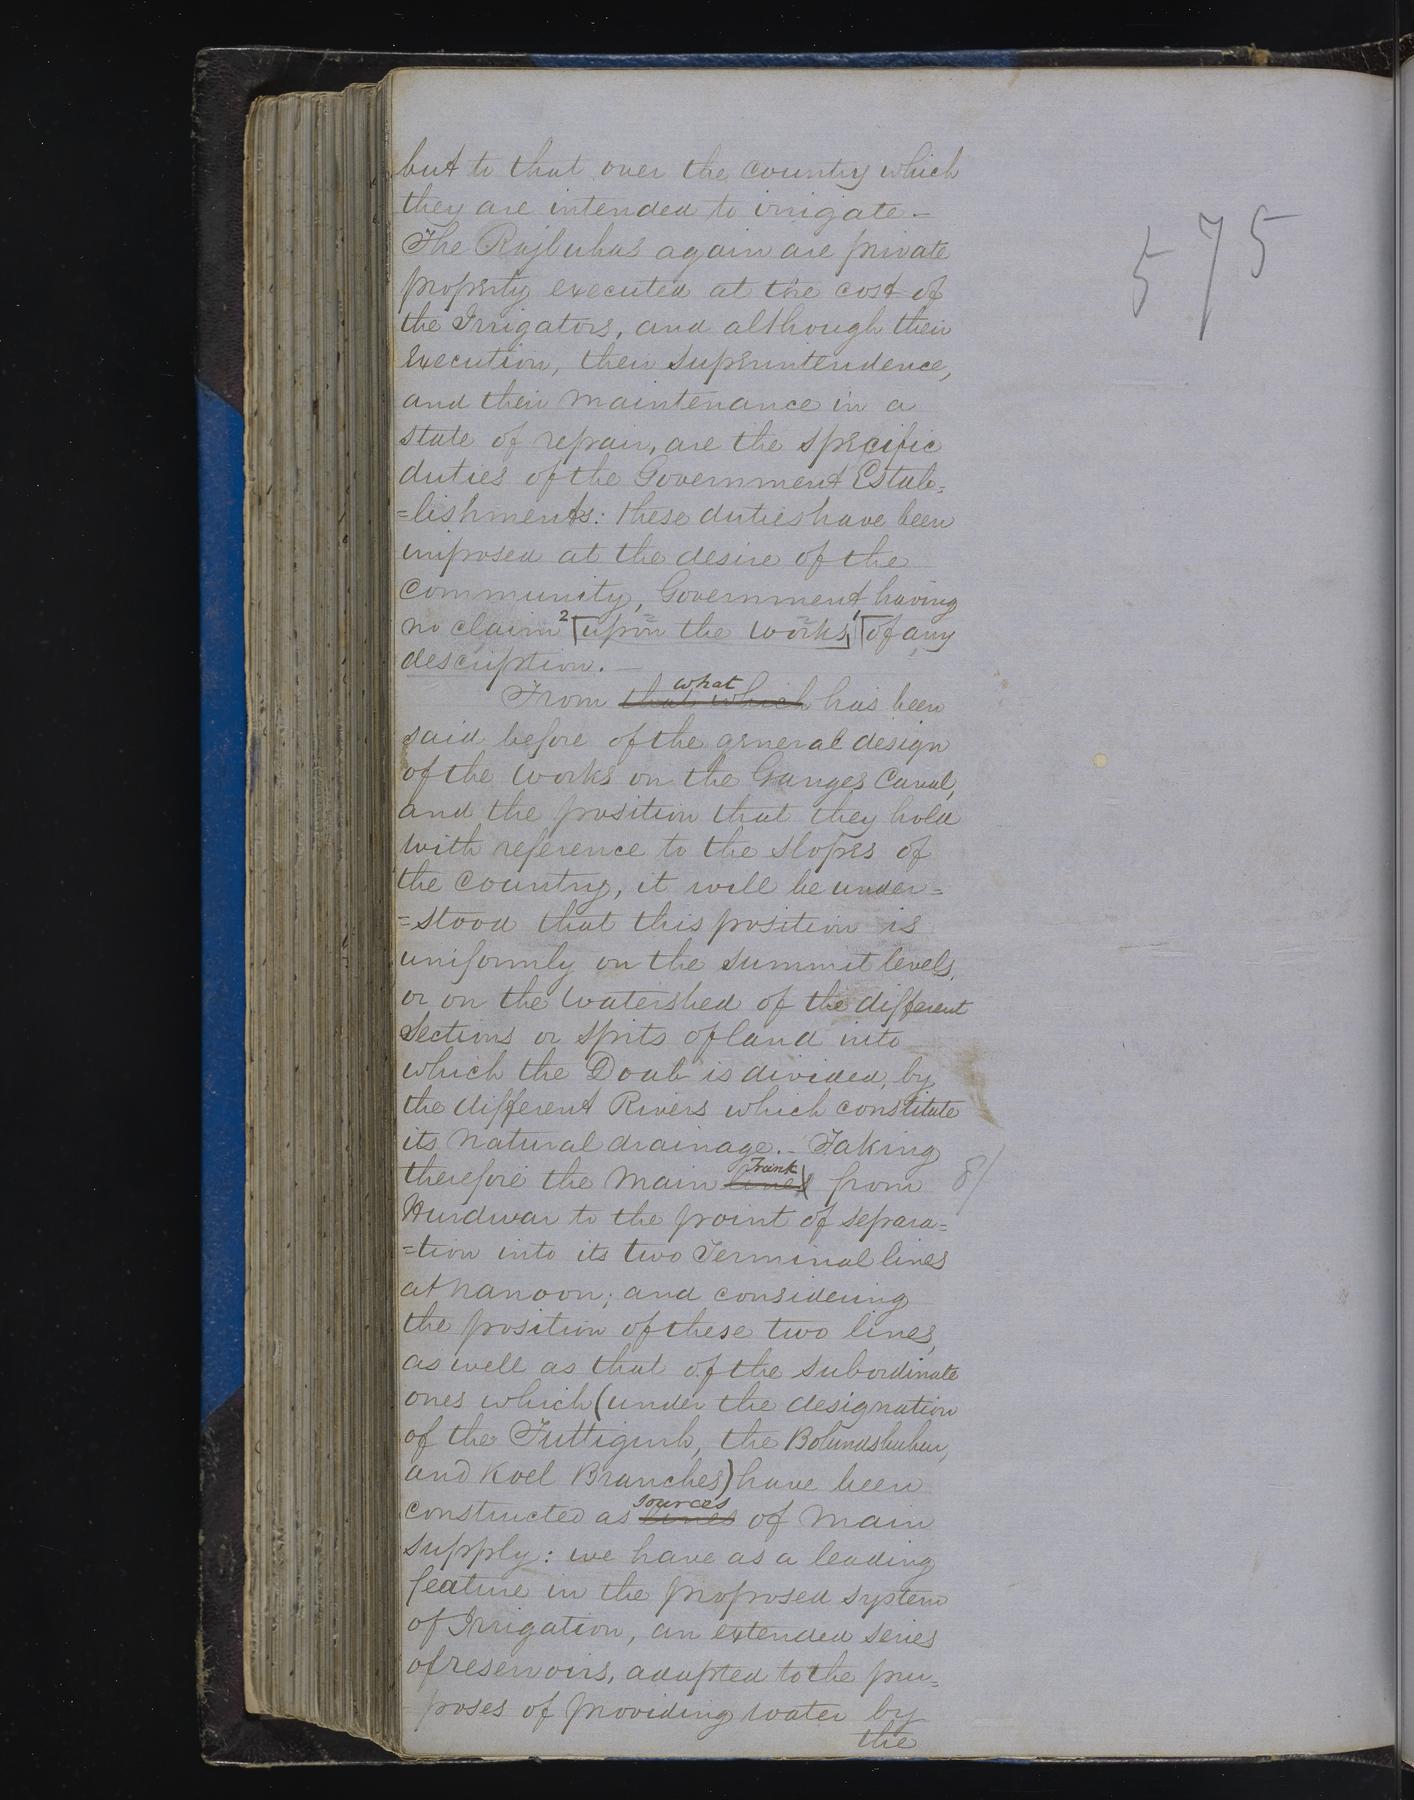 but to that over the country which
they are intended to irrigate.—
575
The Rajbuhas again are private
property executed at the cost of
the Irrigators, and although their
execution, their superintendence,
and their maintenance in a
state of repair, are the specific
duties of the Government Estab=
=lishments: these duties have been
imposed at the desire of the
community, Government having
no claim 2 [upon the works] 1 [of any
description.—
what
From that which has been
said before of the general design
of the works on the Ganges Canal,
and the position that they hold
with reference to the slopes of
the country, it will be under=
=stood that this position is
uniformly on the summit levels,
or on the watershed of the different
sections or spits of land into
which the Doab is divided, by
the different Rivers which constitute
its natural drainage.– Taking
Trunk
therefore the Main lines from 8/
Hurdwar to the point of separa=
=tion into its two Terminal lines
at Nanoon; and considering
the position of these two lines,
as well as that of the subordinate
ones which (under the designation
of the Futtigurh, the Bolundshuhur,
and Koel Branches) have been
sources
constructed as lines of main
supply: we have as a leading
feature in the proposed system
of Irrigation, an extended series
of reservoirs, adapted to the pur=
poses of providing water by
the